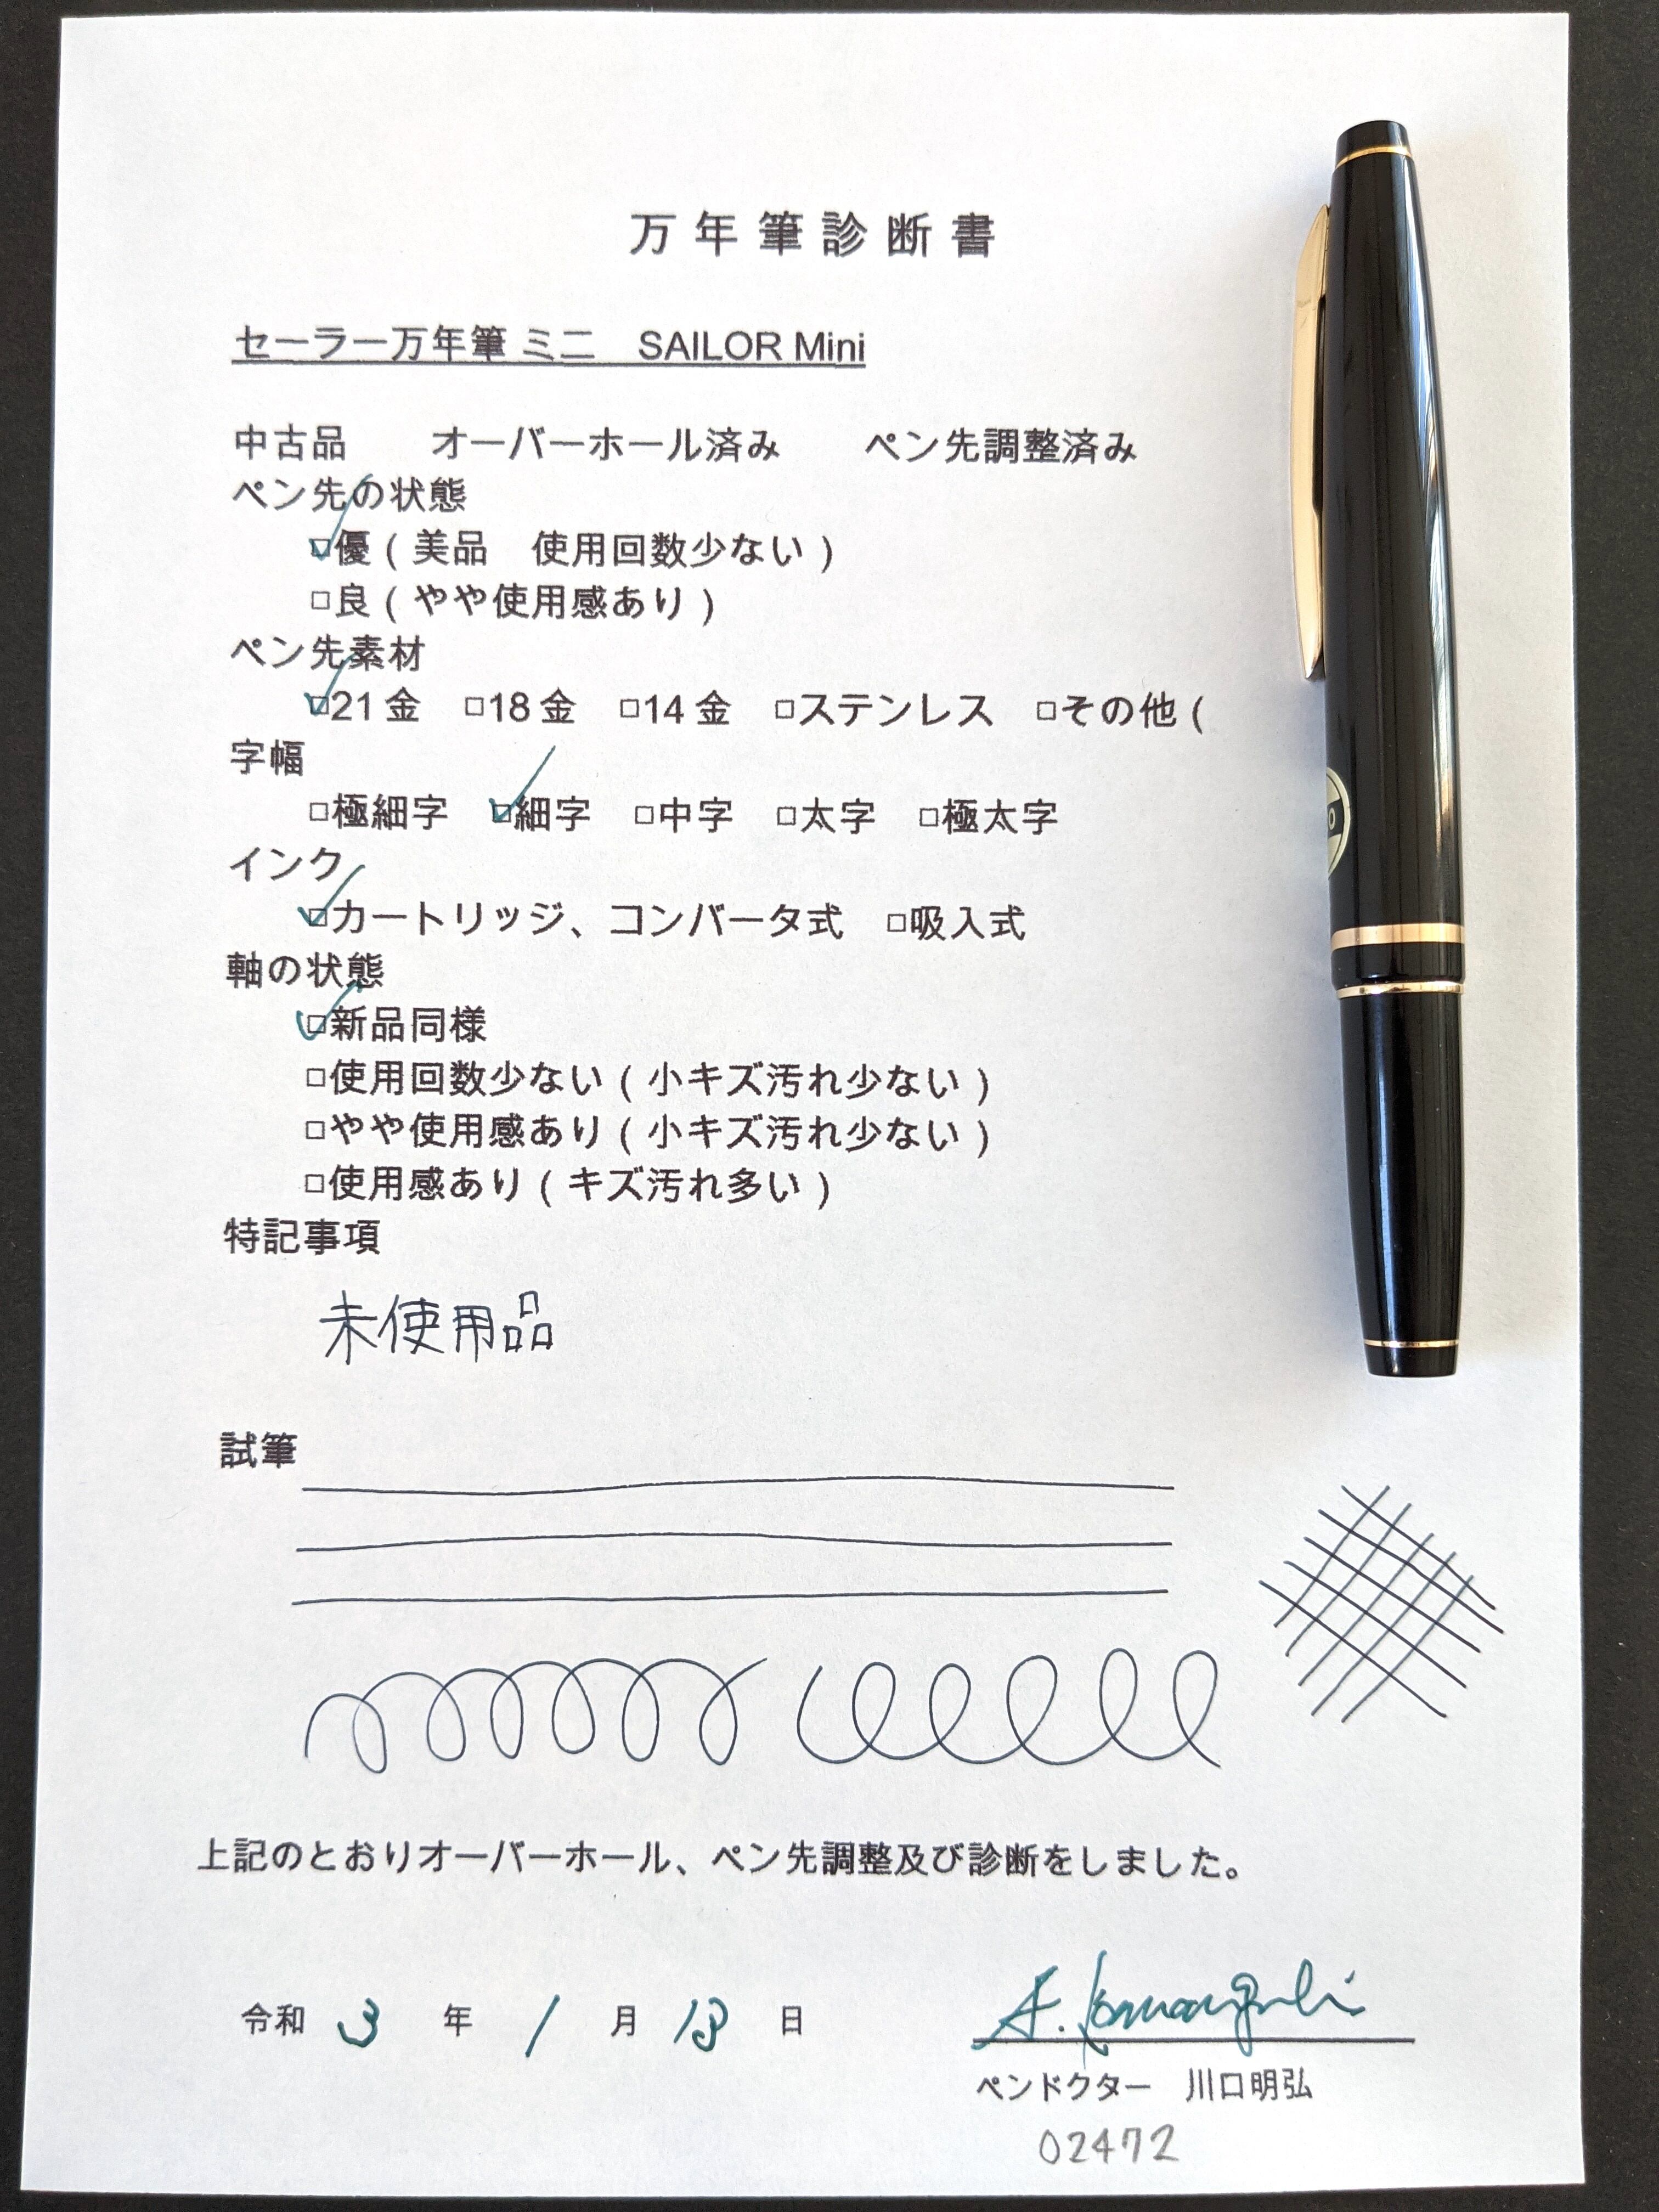 万年筆診断書
セーラー万年筆 ミニ　SAILOR Mini
中古品　オーバーホール済み　ペン先調整済み
ペン先の状態
☑優（美品　使用回数少ない）
□良（やや使用感あり）
ペン先素材
☑21金　□18金　□14金　□ステンレス　□その他（
字幅
□極細字　☑細字　□中字　□太字　□極太字
インク
☑カートリッジ、コンバータ式　□吸入式
軸の状態
☑新品同様
□使用回数少ない（小キズ汚れ少ない）
□やや使用感あり（小キズ汚れ少ない）
□使用感あり（キズ汚れ多い）
特記事項
未使用品
試筆
上記のとおりオーバーホール、ペン先調整及び診断をしました。
令和 3 年 1 月 13 日
A. Kawaguchi
ペンドクター　川口明弘
02472